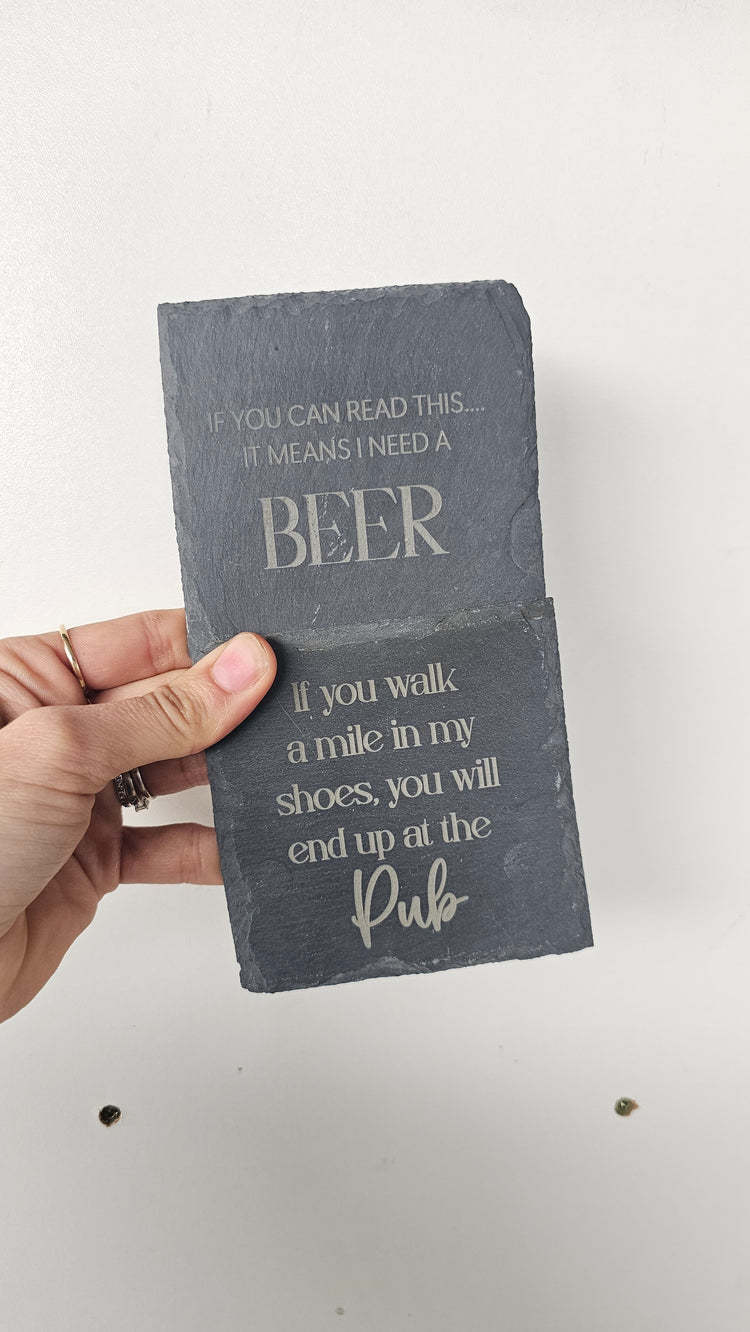 IF YOU CAN READ THIS....
IT MEANS I NEED A
BEER
If you walk
a mile in my
shoes, you will
end up at the
Pub